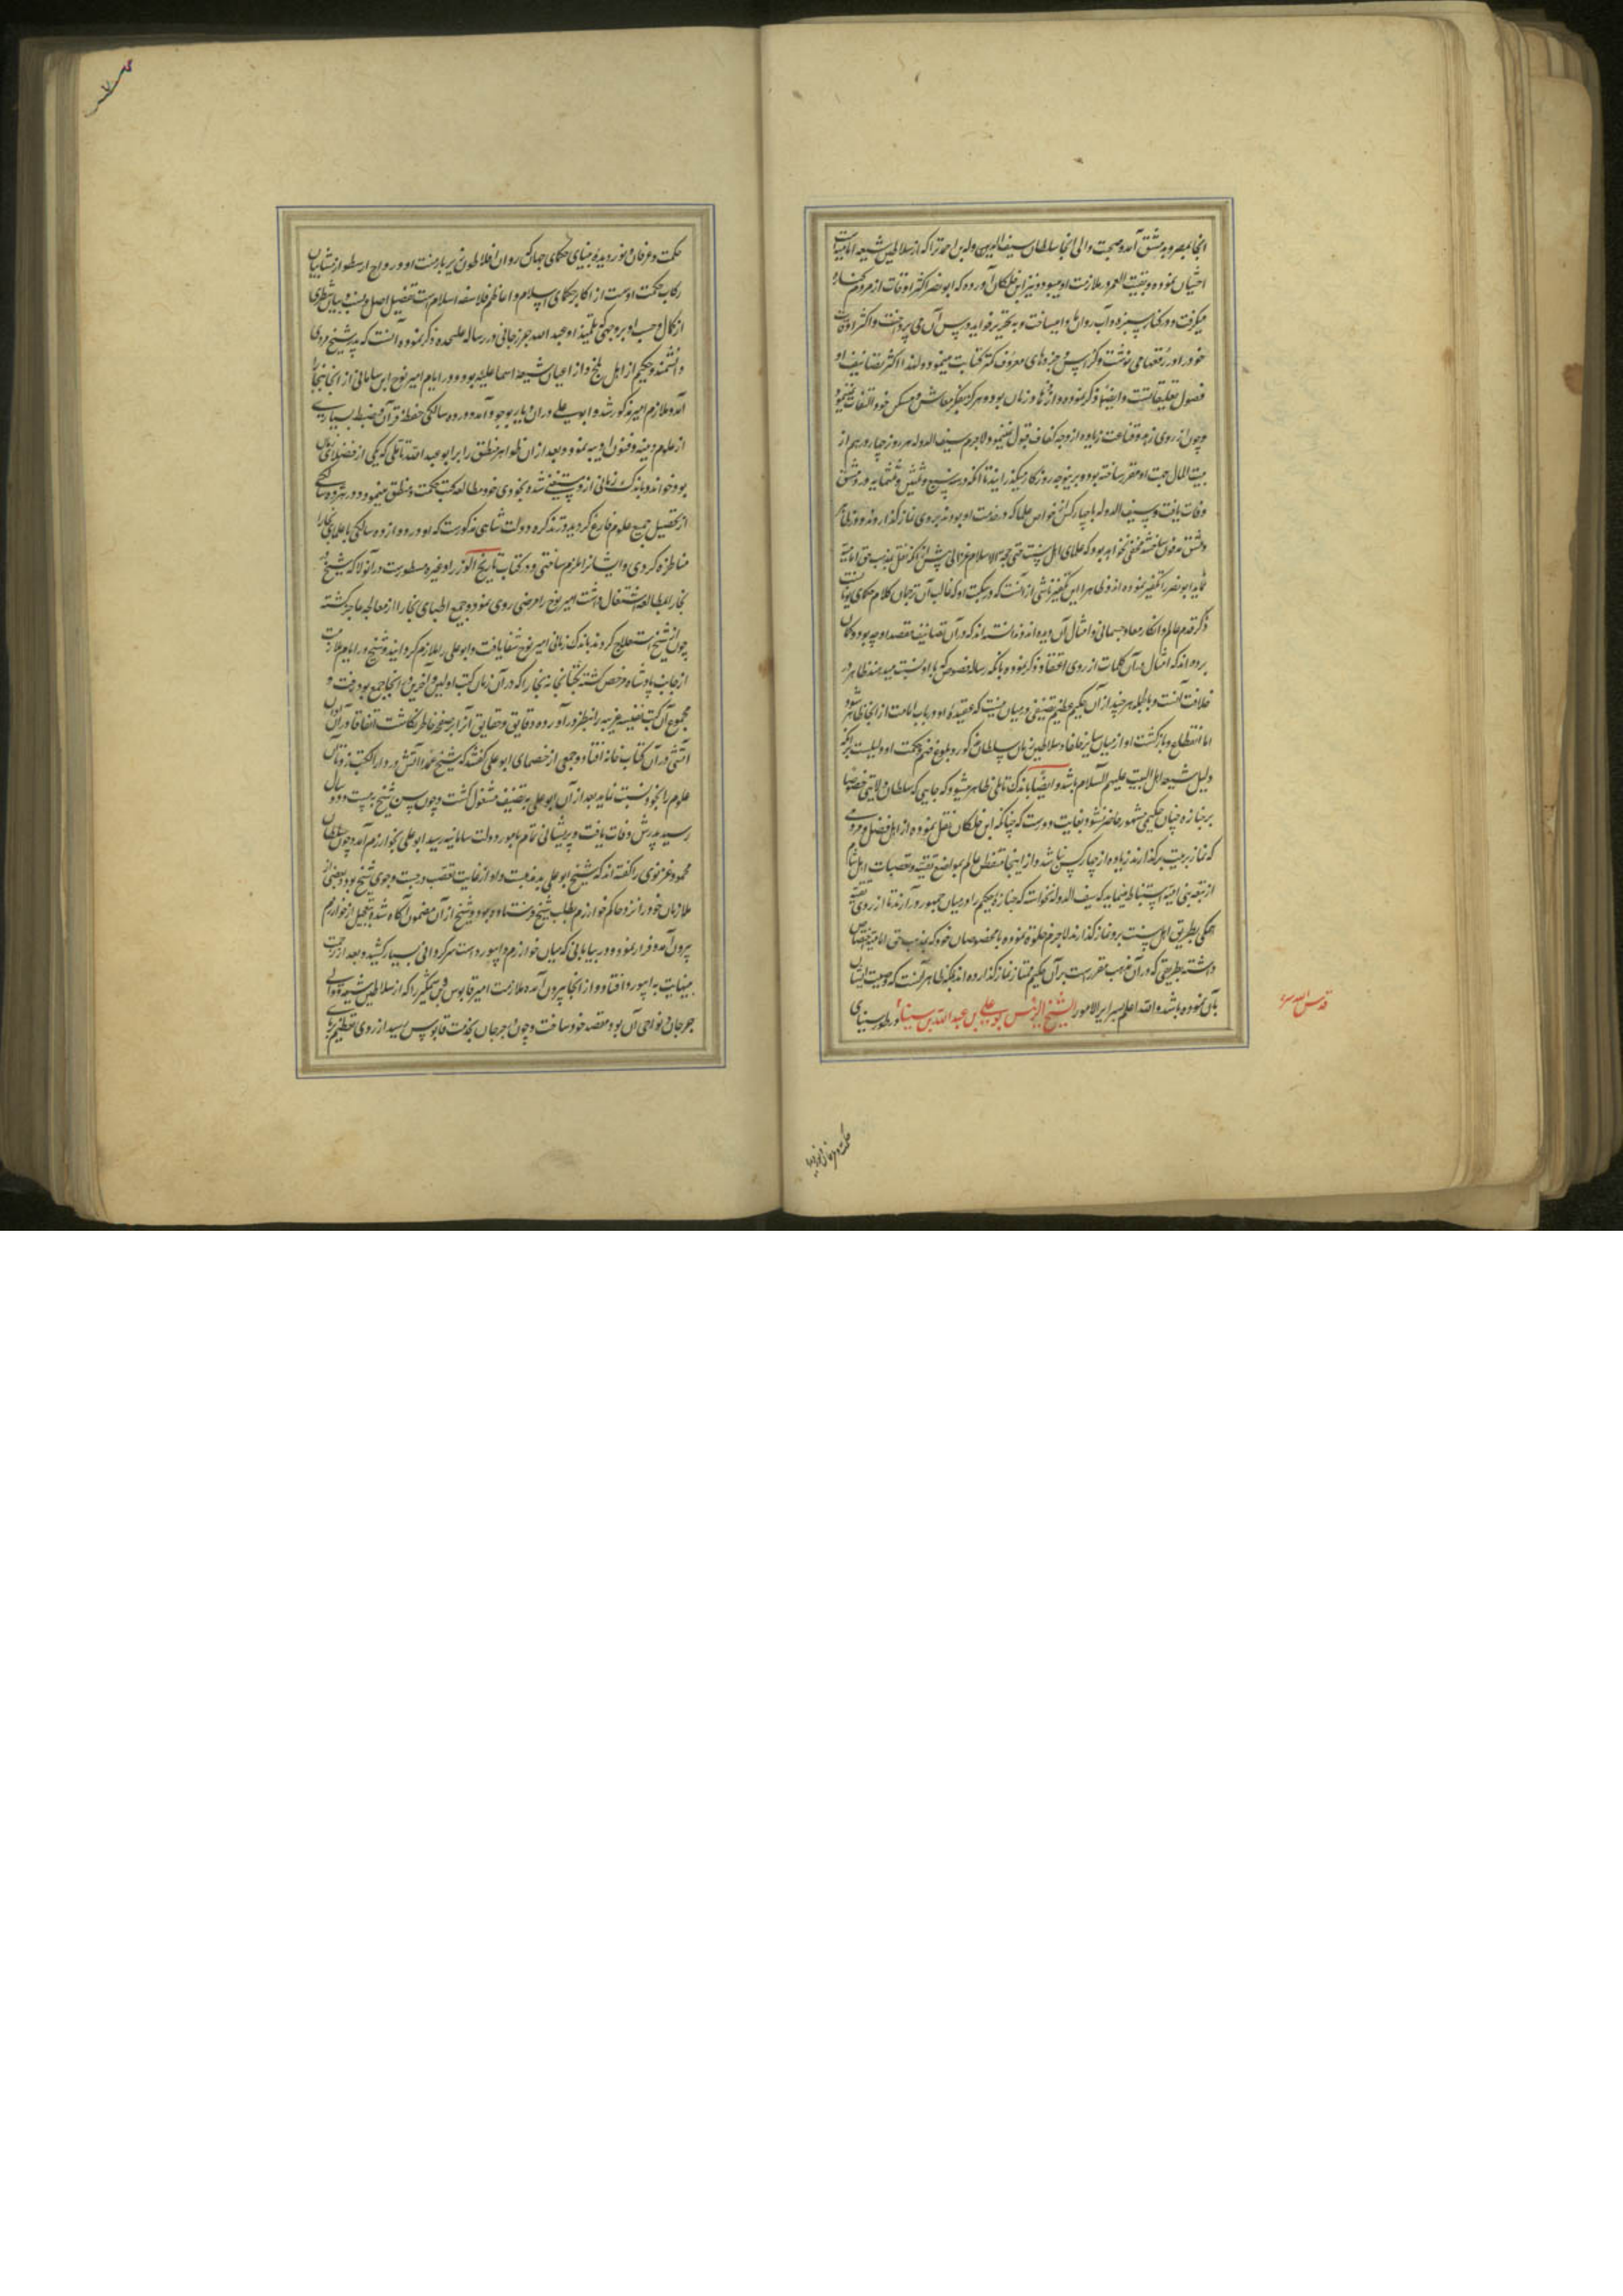 انجا بمصر و بدمشق آمد و صحبت والی انجا سلطان سیف الدوله بن احمد را که از سلاطین شیعه امامیه است
اختیار نموده و بقیت العمر در ملازمت او میبود و نیز ابن خلکان آورده که ابو نصر اکثر اوقات از مردم کناره
میگرفت و در کنار سبزه و آب روان وا میساخت و به تحریر فواید درس آن می پرداخت و اکثر اوقات
خود را در رقعها می نوشت و کراریس و جزوهای معروف کمتر کتابت مینمود و لهذا اکثر تصانیف او
فصول تعلیقاتست و ایضا ذکر نموده و ازهد زمان بوده و هرگز بفکر معاش و مسکن خود التفات نمینمود
و چون از روی زهد و قناعت زیاده از وجه کفاف قبول نمینمود لاجرم سیف الدوله هر روز چهار درهم از
بیت المال جهت او مقرر ساخته بود و برینوجه روزگار میگذرانید تا انکه در سنه سی و ثلثمایه در دمشق
وفات یافت و سیف الدوله با چهار کس از خواص علما که در خدمت او بودند بر وی نماز گذاردند و در ظاهر
دمشق مدفون ساختند مخفی نخواهد بود که علمای اهل سنت حتی حجه الاسلام غزالی پیش از آنکه نقل بمذهب حق امامیه
نماید ابو نصر را تکفیر نموده اند و ظاهرا این تکفیر ناشی از آنست که در کتب او که غالب آن ترجمان کلام حکمای یونانست
ذکر قدم عالم و انکار معاد جسمانی و امثال آن دیده اند و ندانسته اند که در آن تصانیف مقصد او چه بوده و گمان
برده اند که امثال آن کلمات از روی اعتقاد ذکر نموده و بانکه رساله فصوص که باو نسبت میدهند ظاهر در
خلاف آنست و بالجمله هر چند از آن حکیم علیم تصنیفی در میان نیست که عقیده او در باب امامت از انجا ظاهر شود
اما انقطاع و بازگشت او از میان سایر خلفا و سلاطین زمان بسلطان مذکور و بلوغ فهم و حکمت او دلیلست بر انکه
دلیل شیعه اهل البیت علیهم السلام باشد و ایضا باندک تاملی ظاهر میشود که جایی که سلطان ولایتی خصوصا
بر جنازه چنان حکیمی مشهور حاضر شود بغایت دورست که چنانکه ابن خلکان نقل نموده از اهل فضل و مردمی
که نماز بر میت گذارند زیاده از چهار کس نباشد و از اینجا متفطن عالم بمواضع تقیه و تعصبات اهل شام
همگی بطریق اهل سنت برو نماز گذارند لاجرم خلوه نموده با مخصوصان خود که بمذهب حق امامیه اختصاص
داشتند بطریقی که در آن مذهب مقرر است بر آن حکیم ممتاز نماز گذارده اند بلکه ظاهر آنست که وصیت ایشان
بآن نموده باشد و الله اعلم بسرایر الامور الشیخ الرئیس بو علی بن عبدالله بن سینا نور طور سینای
قدس الله سره
حکمت و عرفان و نور دیده
حکمت و عرفان و نور دیده بینای حکمای جهان که روان افلاطون زیر بار منت او و رواج ارسطو از مشاییان
رکاب حکمت اوست از اکابر حکمای اسلام و اعاظم فلاسفه اسلام است تفصیل اصل و نسب و بیان شطری
از کمال و حسب او بر وجهی که تلمیذ او عبد الله جرزجانی در رساله علیحده ذکر نموده آنست که پدر شیخ مردی
دانشمند و حکیم از اهل بلخ و از اعیان شیعه اسماعلیه بود و در ایام امیر نوح بن سامانی از انجا ببخارا
آمده ملازم امیر مذکور شد و ابو علی در ان دیار بوجود آمد و در ده سالگی حفظ قرآن و ضبط بسیاری
از علوم دینیه و فنون ادبیه نمود و بعد از ان ظواهر منطق را بر ابو عبد الله ناتلی که یکی از فضلای زمان
بود خوانده و باندک زمانی ازو مستغنی شده بخودی خود مطالعه کتب حکمت و منطق مینمود و در هژده سالگی
از تحصیل جمیع علوم فارغ گردید و در تذکره دولت شاهی مذکورست که او در دوازده سالگی با علمای بخارا
مناظره کردی و ایشانرا ملزم ساختی و در کتاب تاریخ الوزرا و غیره مسطورست در آنولا که شیخ در
بخارا بمطالعه اشتغال داشت امیر نوح را مرضی روی نمود و جمیع اطبای بخارا از معالجه عاجز گشته
چون از شیخ استعلاج کردند باندک زمانی امیر نوح شفا یافت و ابو علی را ملازم گردانید و شیخ در ایام ملازمت
از جانب پادشاه مرخص گشته بکتابخانه بخارا که در آن زمان کتب اولین و آخرین در انجا جمع بود رفت و
مجموع آن کتب نفیسه غریبه را بنظر در آورده و دقایق و حقایق آنرا بر صفحه خاطر نگاشت اتفاقا در آن اوان
آتشی در آن کتاب خانه افتاد و جمعی از خصمای ابو علی گفتند که شیخ عمدا آتش در دار الکتب زد تا آن
علوم را بخود نسبت نماید بعد از آن ابو علی بتصنیف مشغول گشت و چون سن شیخ به بیست و دو سال
رسید پدرش وفات یافت و پریشانی تمام بامور دولت سامانیه رسید ابو علی بخوارزم آمد و چون سلطان
محمود غزنوی را گفته اند که شیخ ابو علی بد مذهبست و او از غایت تعصب در جست و جوی شیخ بود و بعضی از
ملازمان خود را نزد حاکم خوارزم بطلب شیخ فرستاده بود و شیخ از آن مضمون آگاه شده بتعجیل از خوارزم
بیرون آمد و فرار نمود و در بیابانی که میان خوارزم و ابیورد است سرگردانی بسیار کشید و بعد از زحمت
بینهایت به ابیورد افتاد و از انجا بیرون آمده ملازمت امیر قابوس بن وشمگیر را که از سلاطین شیعه و والی
جرجان و نواحی آن بود مقصد خود ساخت و چون بجرجان بخدمت قابوس رسید از روی تعظیم بر پای